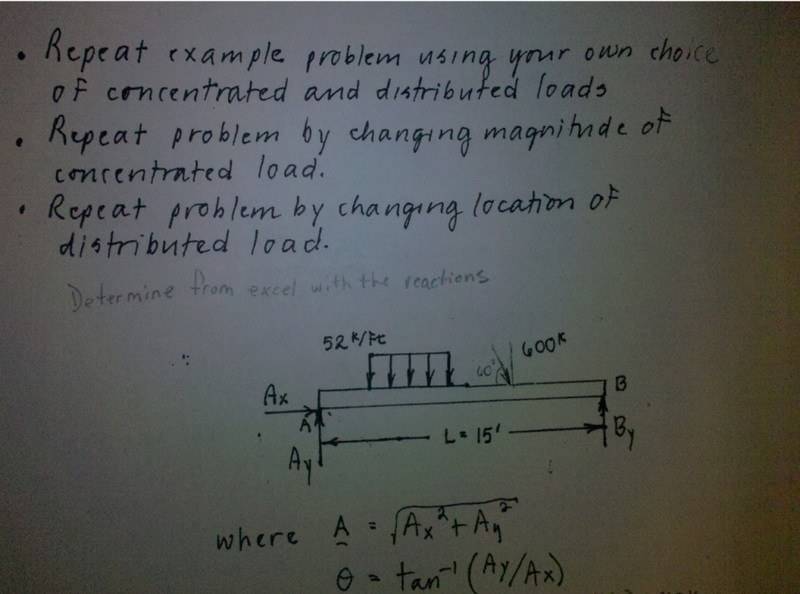 • Repeat example problem using your own choice
of concentrated and distributed loads
• Repeat problem by changing magnitude of
concentrated load.
• Repeat problem by changing location of
distributed load.
Determine from excel with the reactions
52 K/Ft
600K
60°
Ax
A
B
L = 15'
By
Ay
where A = √Ax² + Ay²
θ = tan⁻¹ (Ay/Ax)